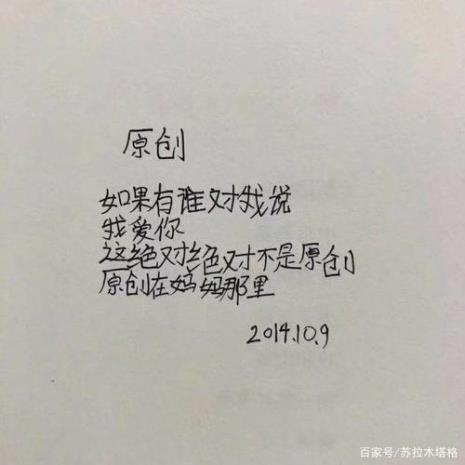 原创
如果有谁对我说
我爱你
这绝对绝对不是原创
原创在妈妈那里
2014.10.9
百家号/苏拉木塔格